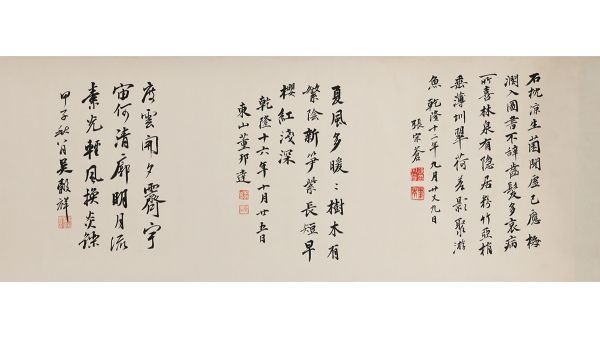 石枕凉生菌閣虛已應梅
潤入圖書不辭齒髮多衰病
所喜林泉有隐居粉竹亞梢
垂薄圳翠荷差影聚游
魚 乾隆十二年九月廿又九日
張宗蒼
夏風多暖〻樹木有
繁陰新笋紫長短早
櫻紅淺深
乾隆十六年十月廿五日
東山董邦達
度雲開夕霽宇
宙何清廓明月流
素光輕風換炎鑠
甲子秋月吳穀祥